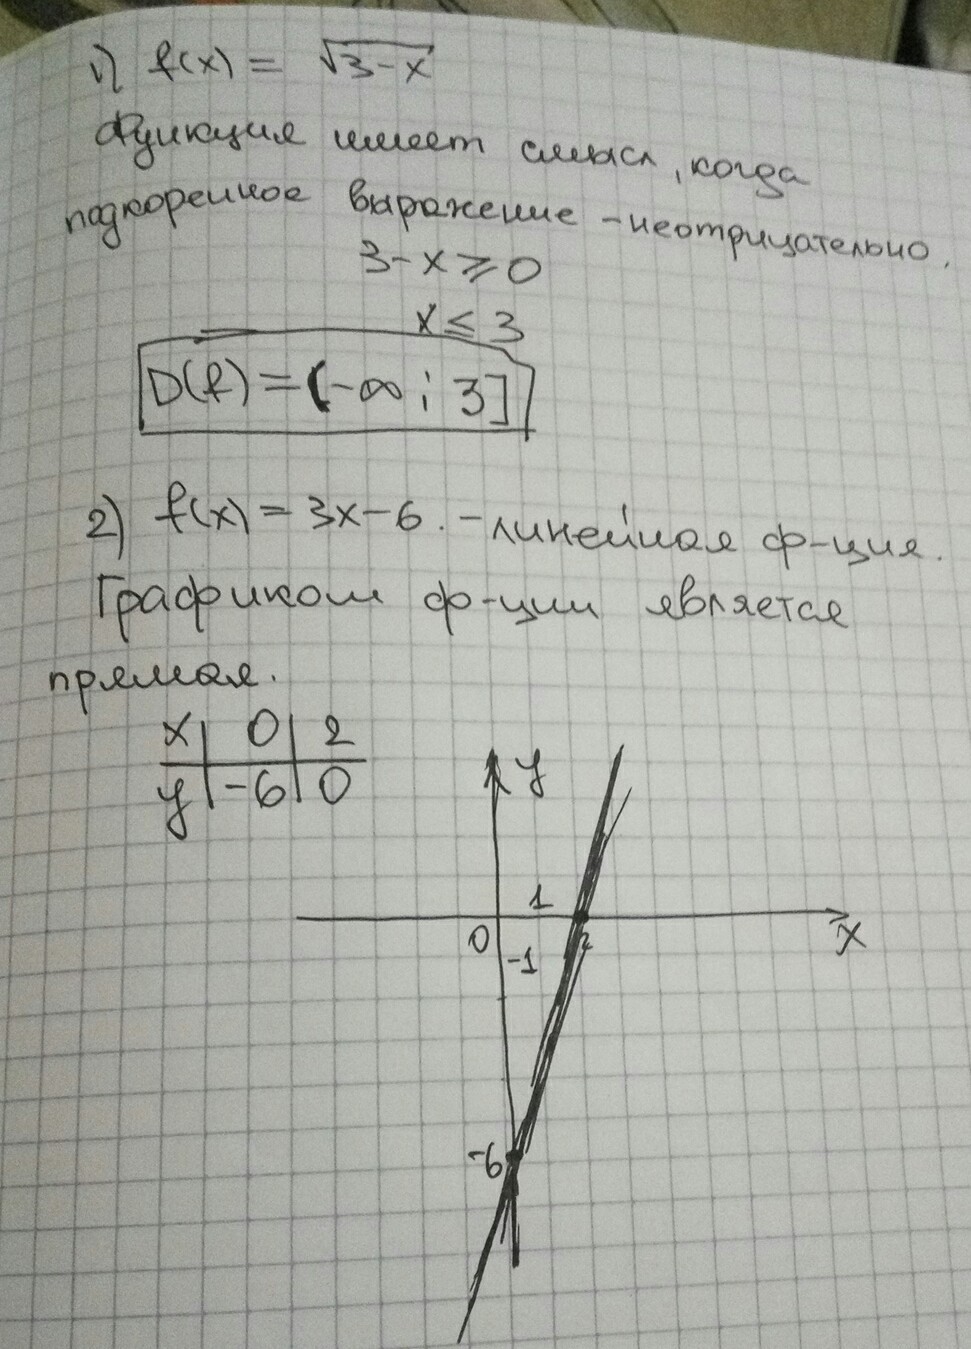 1) f(x) = √3-x
Функция имеет смысл, когда
подкоренное выражение - неотрицательно.
3-x ⩾ 0
x ≤ 3
D(f) = (-∞; 3]
2) f(x) = 3x-6. - линейная ф-ция.
Графиком ф-ции является
прямая.
x | 0 | 2
y | -6 | 0
y
1
0 2 x
-1
-6